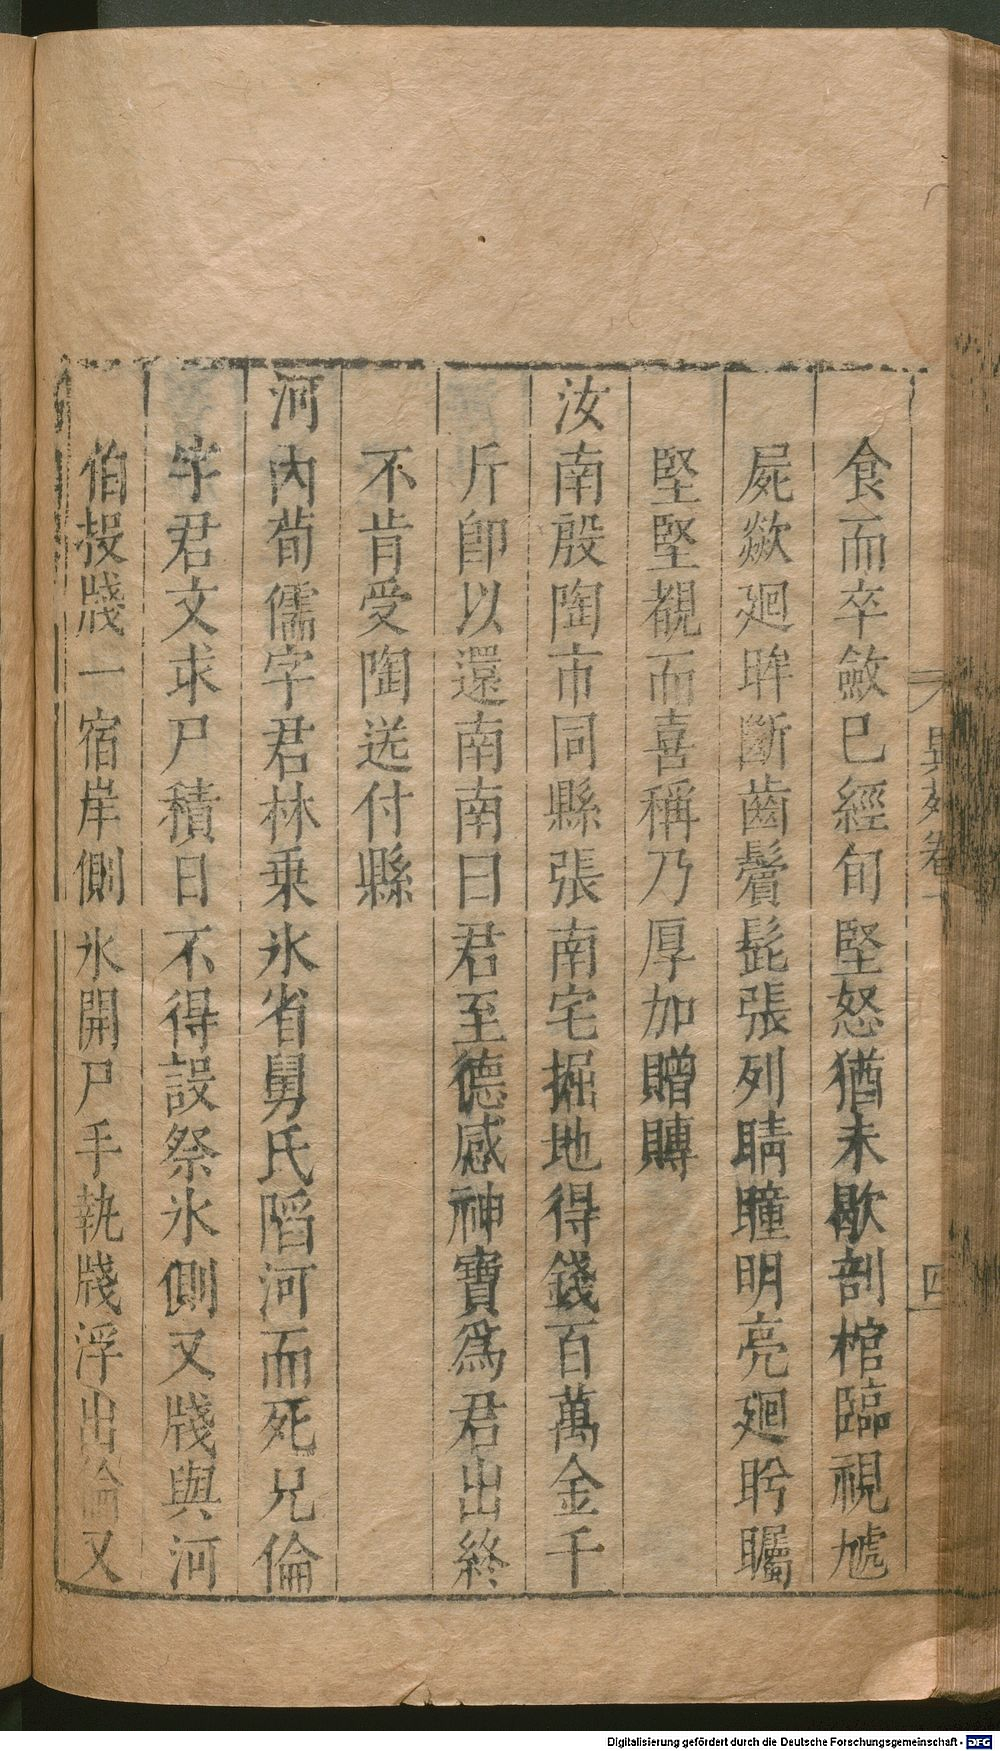 食而卒斂已經旬堅怒猶未歇剖棺臨視虓
屍歘廻眸斷齒鬢髭張列睛瞳明亮廻盻矚
堅堅覩而喜稱乃厚加贈賻
汝南殷陶市同縣張南宅掘地得錢百萬金千
斤卽以還南南曰君至德感神寶爲君出終
不肯受陶送付縣
河內荀儒字君林乗氷省舅氏䧟河而死兄倫
字君文求尸積日不得設祭氷側又牋與河
伯投牋一宿岸側氷開尸手執牋浮出倫又
異苑卷
四
Digitalisierung gefördert durch die Deutsche Forschungsgemeinschaft - DFG